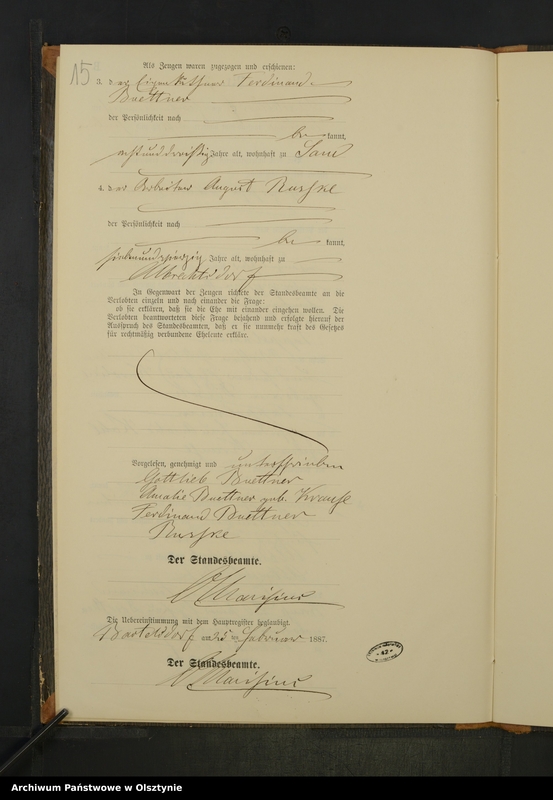 15
Als Zeugen waren zugezogen und erschienen:
3. der Eigenkäthner Ferdinand
Buettner
der Persönlichkeit nach
be kannt,
acht und dreißig Jahre alt, wohnhaft zu
4. der Arbeiter August
der Persönlichkeit nach
be kannt,
sieben und vierzig Jahre alt, wohnhaft zu
Albrechtsdorf
In Gegenwart der Zeugen richtete der Standesbeamte an die
Verlobten einzeln und nach einander die Frage:
ob sie erklären, daß sie die Ehe mit einander eingehen wollen. Die
Verlobten beantworteten diese Frage bejahend und erfolgte hierauf der
Ausspruch des Standesbeamten, daß er sie nunmehr kraft des Gesetzes
für rechtmäßig verbundene Eheleute erkläre.
Vorgelesen, genehmigt und unterschrieben
Gottlieb Buettner
Amalie Buettner geb. Krause
Ferdinand Buettner
Der Standesbeamte.
Die Uebereinstimmung mit dem Hauptregister beglaubigt.
Bartelsdorf am 25 ten Februar 1887.
Der Standesbeamte.
42
Archiwum Państwowe w Olsztynie